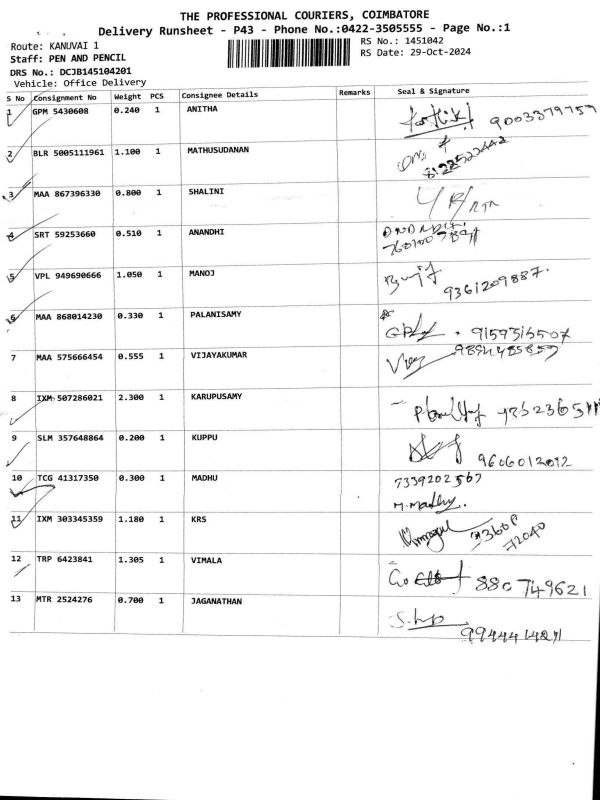 THE PROFESSIONAL COURIERS, COIMBATORE
Delivery Runsheet - P43 - Phone No.:0422-3505555 - Page No.:1
Route: KANUVAI 1
RS No.: 1451042
Staff: PEN AND PENCIL
RS Date: 29-Oct-2024
DRS No.: DCJB145104201
Vehicle: Office Delivery
S No Consignment No Weight PCS Consignee Details Remarks Seal & Signature
1 GPM 5430608 0.240 1 ANITHA
9003379759
2 BLR 5005111961 1.100 1 MATHUSUDANAN
8122522442
3 MAA 867396330 0.800 1 SHALINI
4 SRT 59253660 0.510 1 ANANDHI
5 VPL 949690666 1.050 1 MANOJ
9361209887.
16 MAA 868014230 0.330 1 PALANISAMY
7 MAA 575666454 0.555 1 VIJAYAKUMAR
8 IXM 507286021 2.300 1 KARUPUSAMY
9 SLM 357648864 0.200 1 KUPPU
9606012092
10 TCG 41317350 0.300 1 MADHU
7339202567
M. Madhu.
11 IXM 303345359 1.180 1 KRS
72040
12 TRP 6423841 1.305 1 VIMALA
880749621
13 MTR 2524276 0.700 1 JAGANATHAN